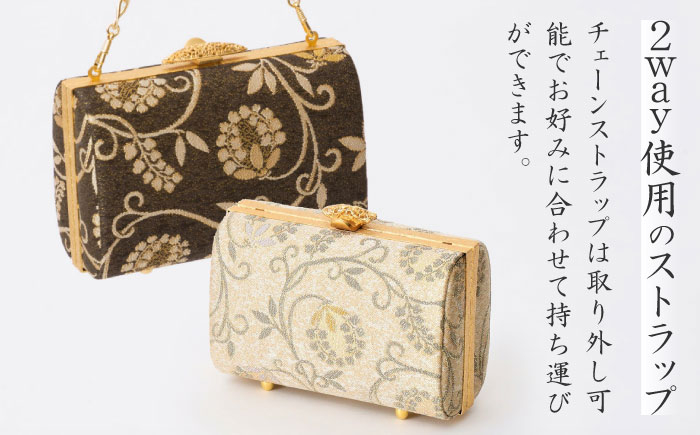 2way使用のストラップ
チェーンストラップは取り外し可
能でお好みに合わせて持ち運び
ができます。